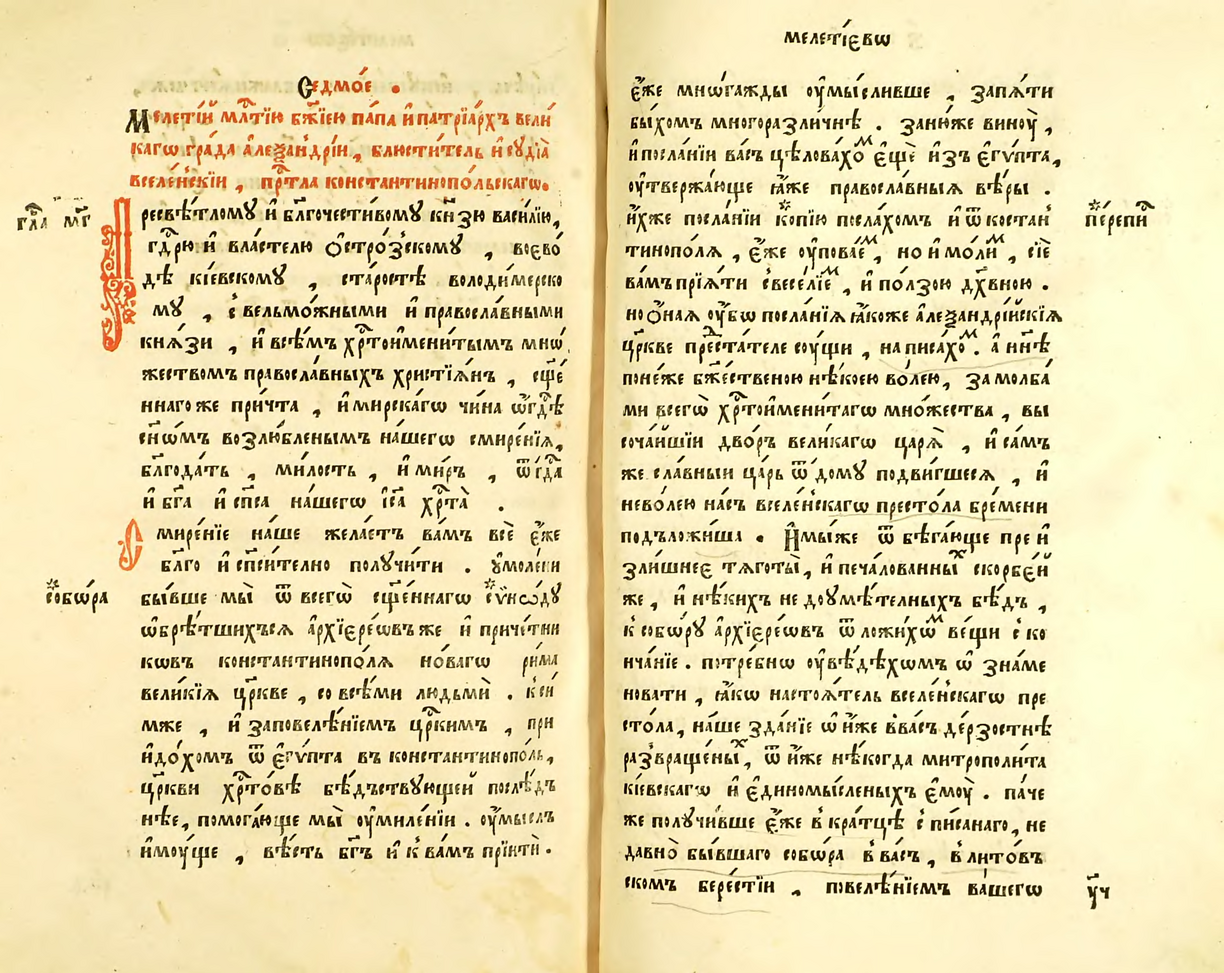 Седмо́е .
Меле́тїй мл҃тїю бж҃їею па́па и҆ патрїа́рхъ вели
каго̀ гра́да а҆леѯандрі́и , блюсти́тель и҆ сꙋдїа̀
вселе́нскїи , прⷭ҇тла константинопо́льскагѡ.
гл҃а мг҃
Пресвѣ́тлому и҆ блг҃очести́вому кн҃зю васи́лїю,
гдⷭ҇рю и҆ вла́стелю Ѻ҆стро́зскомꙋ , воєво́
дѣ кі́евскомꙋ , ста́ростѣ володи́мерско
мꙋ , с̾ вельмо́жными и҆ правосла́вными
кнѧ́зи , и҆ всѣ́мъ хрⷭ҇тоимени́тымъ мнѡ́
жествомъ правосла́вныхъ христїѧ́нъ , сщ҃е́
ннаго же при́чта , и҆ мирска́гѡ чи́на ѡ҆ гдⷭ҇ѣ
сн҃ѡ́мъ возлю́бленымъ на́шегѡ смире́нїѧ,
блг҃ода́ть , ми́лость , и҆ ми́ръ , ѿ гдⷭ҇а
и҆ бг҃а и҆ сп҃са на́шегѡ і҆с҃а хрⷭ҇та̀ .
Смире́нїе на́ше жела́етъ ва́мъ всѐ є҆́же
бл҃го и҆ сп҃си́телно получи́ти . ᲂумоле́ни
собѡ́ра
бы́вше мы̀ ѿ всегѡ̀ сщ҃е́ннагѡ сѵ́нѡдꙋ
ѡ҆брѣ́тшихъсѧ а҆рхїєре́ѡвъ же и҆ приче́тни
кѡвъ константинопо́лѧ но́вагѡ ри́ма
вели́кїѧ цр҃кве , со всѣ́ми людьмѝ . к̾ си́
мже , и҆ заповелѣ́нїемъ црⷭ҇кимъ , при
и҆до́хомъ ѿ є҆гѵ́пта въ константинопо́ль,
цр҃кви хрⷭ҇то́вѣ бѣ́дъствꙋющей послѣ́дъ
нѣе, помога́юще мы̀ ᲂу҆миле́нїи . ᲂу҆́мыслъ
и҆мᲂу́ще , вѣ́сть бг҃ъ и҆ к̾ ва́мъ прїитѝ .
меле́тїєвѡ
є҆́же мнѡ́гажды ᲂу҆мы́сливше , запѧ́ти
бы́хомъ многоразли́чнѣ . зане́же винᲂу̀ ,
и҆ посла́нїи ва́съ цѣлова́хоⷨ є҆щѐ и҆зъ є҆гѵ́пта,
ᲂу҆твержа́юще ꙗ҆́же правосла́вныѧ вѣ́ры .
и҆́хже посла́нїи ко́пїю посла́хомъ и҆ ѿ костан
перепи́
тинопо́лѧ , є҆́же ᲂу҆пова́еⷨ , но и҆ мо́лиⷨ , сїѐ
ва́мъ прїѧ́ти с̾весе́лїеⷨ , и҆ по́лзою дх҃вною .
но Ѻ҆́наѧ ᲂу҆́бѡ посла́нїѧ ꙗ҆́коже а҆леѯандрі́йскїѧ
цр҃кве предста́теле сᲂу́щи , написа́хоⷨ . а҆ нн҃ѣ
поне́же бж҃е́ственою нѣ́коею во́лею, за молба́
ми всегѡ̀ хрⷭ҇тоимени́тагѡ мно́жества , вы
соча́йшїи дво́ръ вели́кагѡ царѧ̀ , и҆ са́мъ
же сла́вныи ца́рь ѿ до́му подви́гшеесѧ , и҆
нево́лею на́съ вселе́нскагѡ престо́ла бре́мени
подъложи́ша . И҆ мы́же ѿ бѣга́юще пре и҆
зли́шнеє тѧготы̀, и҆ печа́лованныⷯ скорбе́й
же , и҆ нѣ́кихъ недоумѣ́телныхъ бѣ́дъ ,
к̾ собо́рꙋ а҆рхїєре́ѡвъ ѿложи́хѡⷨ ве́щи с̾ко
нча́нїе . потре́бнѡ ᲂу҆вѣ́дѣхѡмъ ѡ҆ зна́ме
новати , ꙗ҆́кѡ настоѧ́тель вселе́нскагѡ пре
сто́ла, на́ше зда́нїе ѡ҆ и҆́же в̾ва́съ де́рзостнѣ
развраще́ныⷯ, ѿ и҆́же нѣ́когда митрополи́та
кі́евскагѡ и҆ є҆диномы́сленыхъ є҆мᲂу̀ . па́че
же получи́вше є҆́же в̾ кра́тцѣ с̾писа́наго, не
да́внѡ бы́вшаго собо́ра в̾ ва́съ , в̾ лито́въ
скомъ бере́стїи , повелѣ́нїемъ ва́шегѡ
ᲂу҆ч